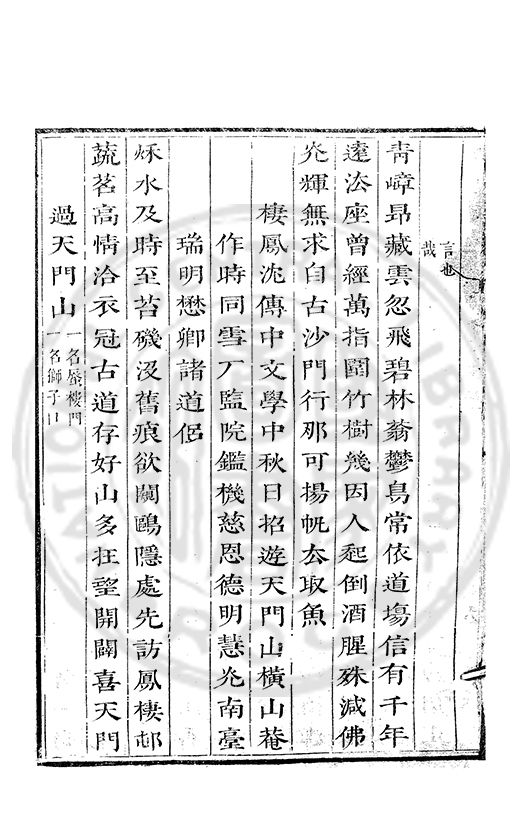 言也
哉
青嶂昂藏雲忽飛碧林蓊鬱鳥常依道場信有千年
遠法座曾經萬指圍竹樹幾因人起倒酒腥殊減佛
光輝無求自古沙門行那可揚帆去取魚
棲鳳沈傳中文學中秋日招遊天門山橫山菴
作時同雪厂監院鑑機慈恩德明慧光南臺
瑞明懋卿諸道侶
秌水及時至苔磯沒舊痕欲闚鷗隱處先訪鳳棲邨
蔬茗高情洽衣冠古道存好山多在望開闢喜天門
過天門山一名蜃樓門一名獅子口